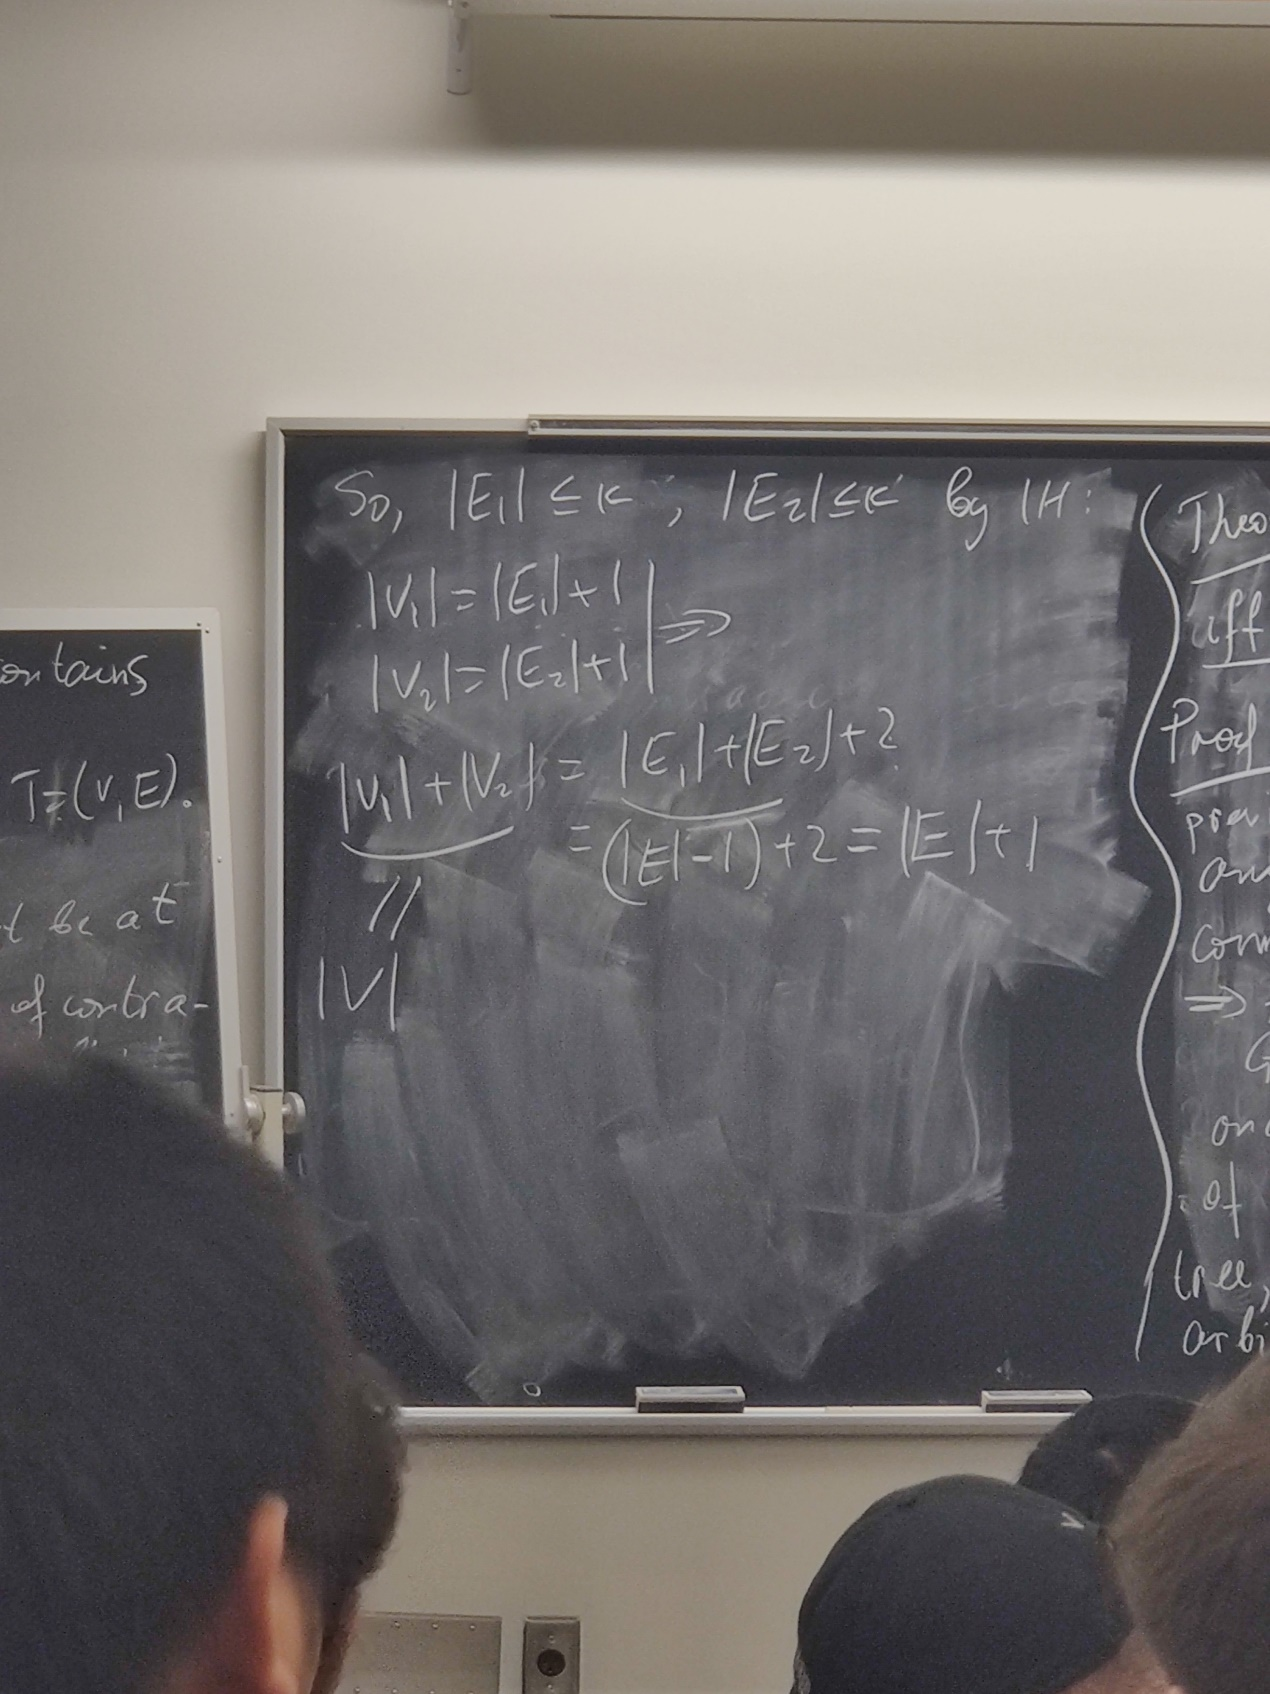 contains
T=(V,E).
t be at
of contra-
So, |E₁| ≤ k, |E₂| ≤ k by IH:
|V₁| = |E₁| + 1
|V₂| = |E₂| + 1 | ⇒
|V₁| + |V₂| = |E₁| + |E₂| + 2
= (|E| - 1) + 2 = |E| + 1
//
|V|
Theo
iff
Proof
previ
and
conn
⇒
G
on
of
tree,
arbi